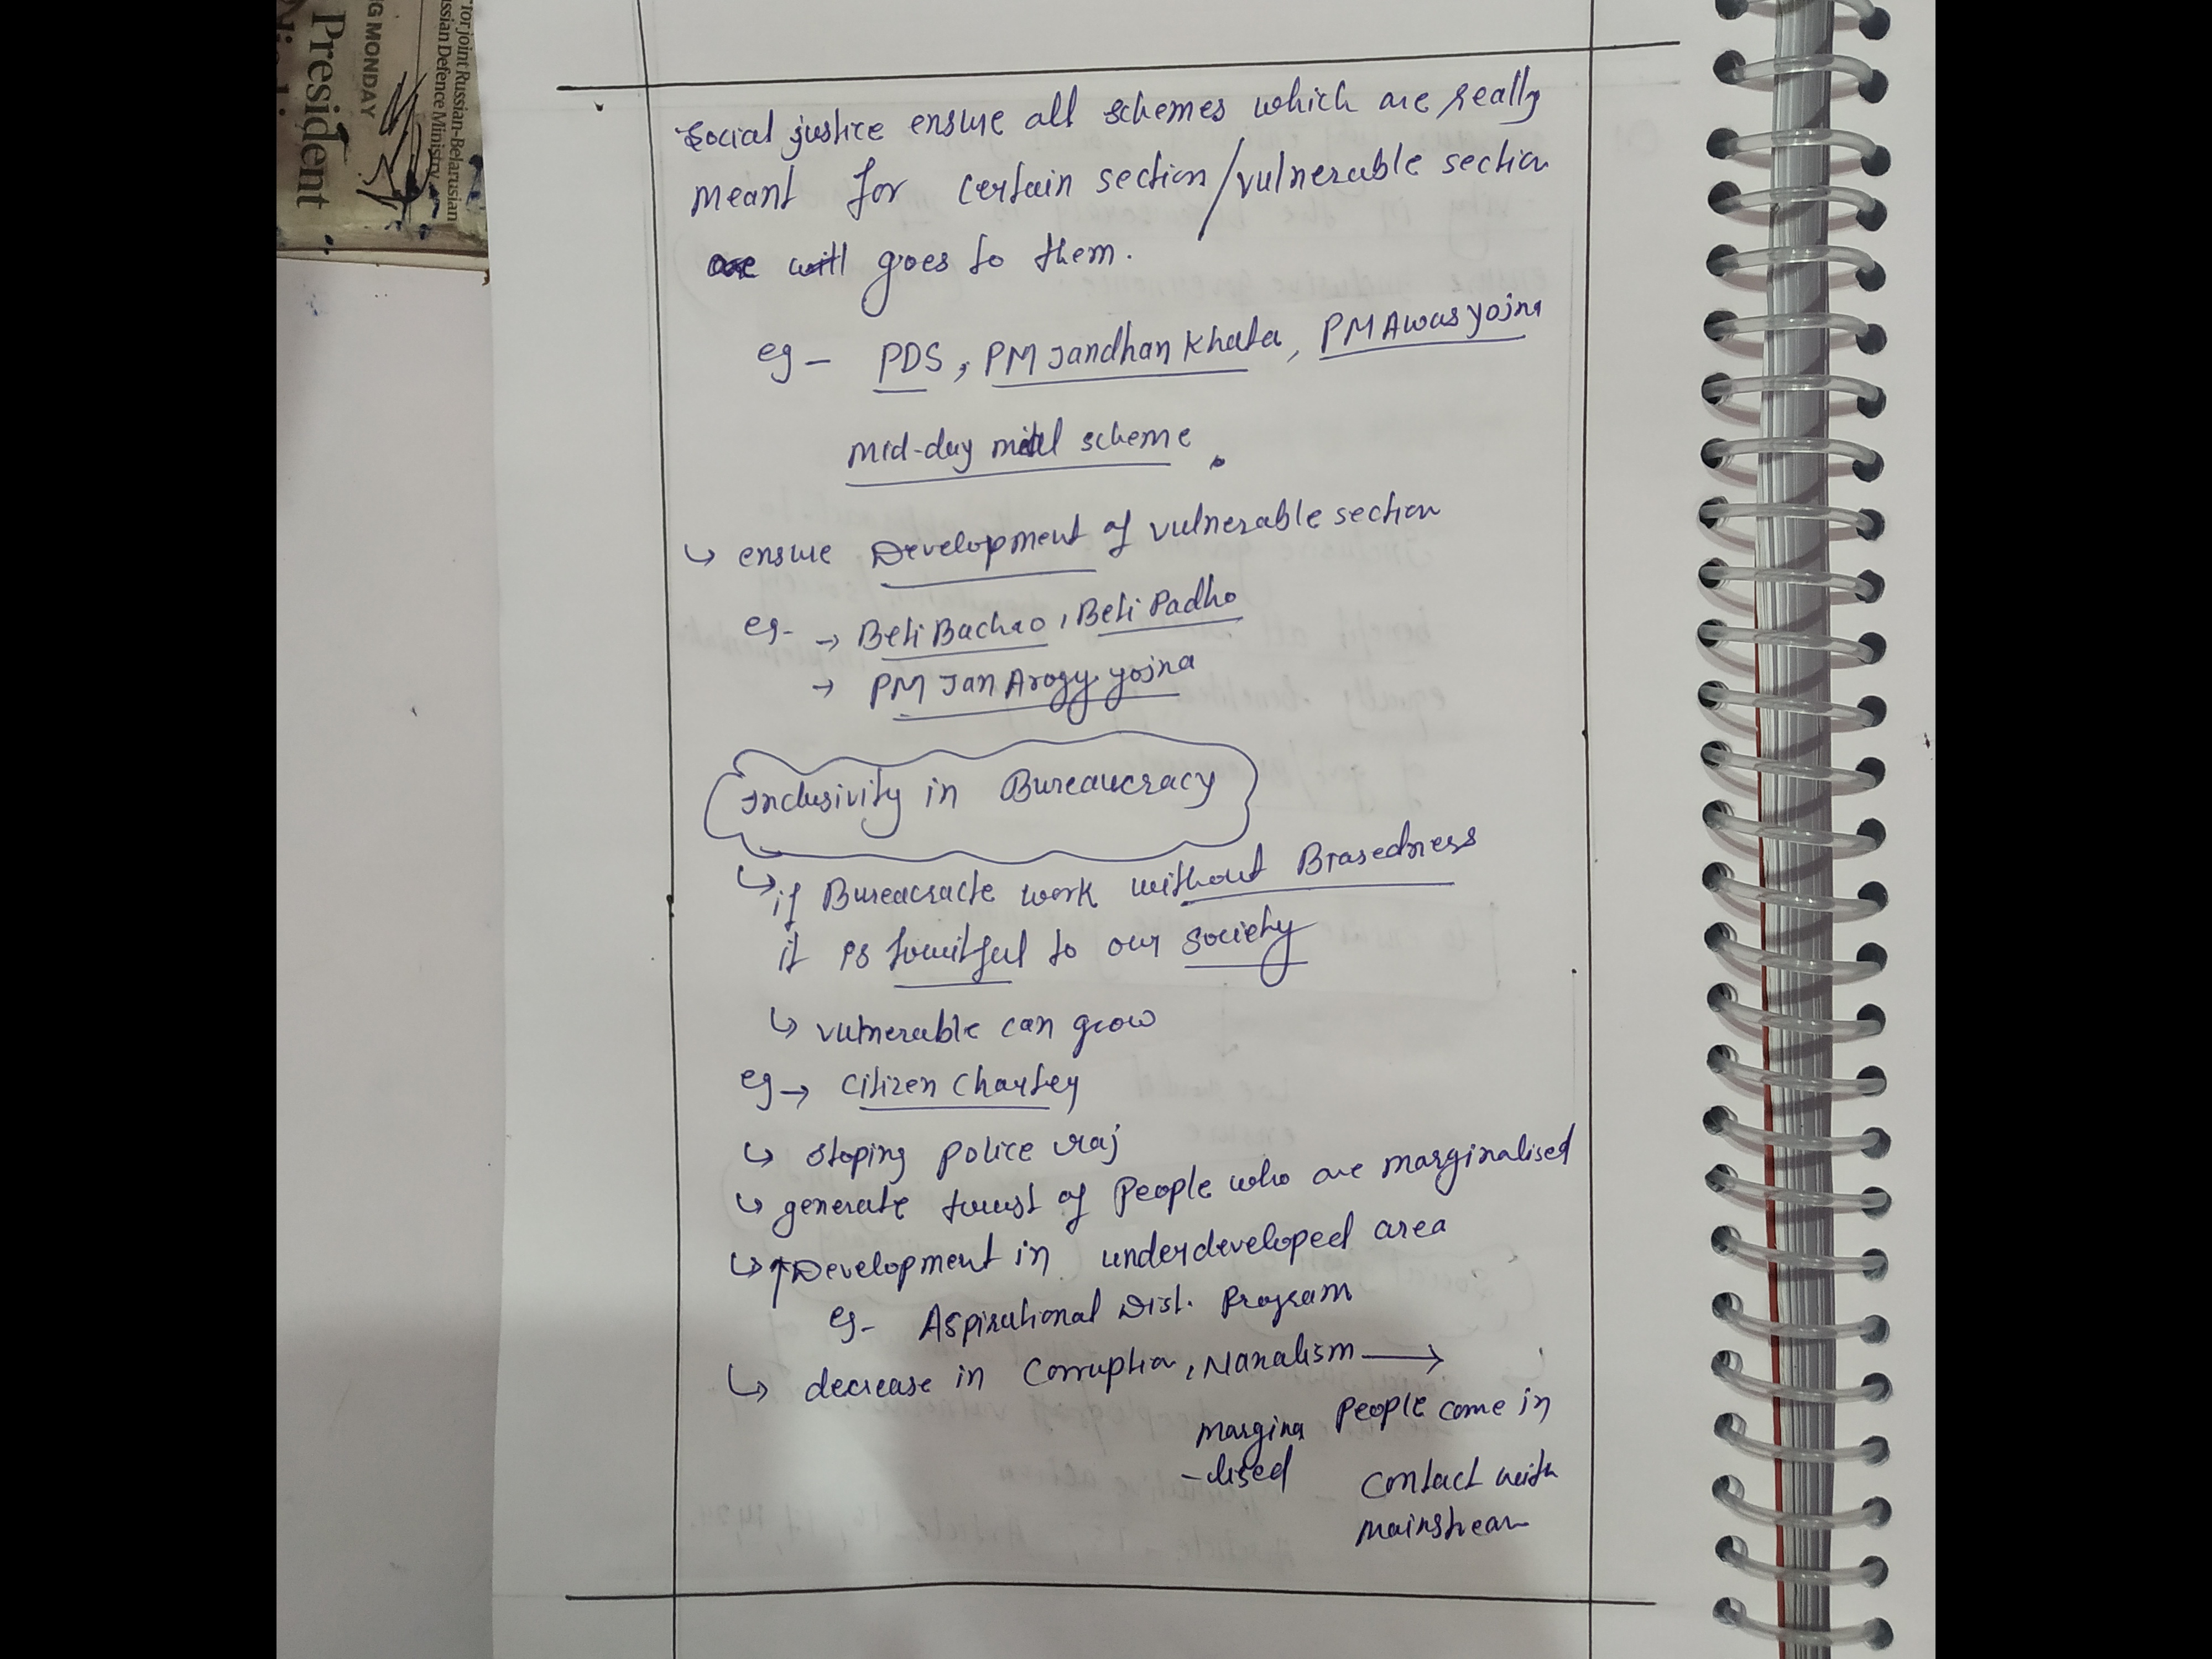 President
G MONDAY
for joint Russian-Belarusian
ssian Defence Ministry
Social justice ensure all schemes which are really
meant for certain section/vulnerable section
goes to them.
eg - PDS, PM Jandhan Khata, PM Awas yojna
Mid-day meal scheme.
↳ ensure Development of vulnerable section
eg- → Beti Bachao, Beti Padho
→ PM Jan Arogy yojna
Inclusivity in Bureaucracy
↳ if Bureacracte work without Biasedness
it is fruitful to our society
↳ vulnerable can grow
eg → Citizen Charter
↳ stoping police raj
↳ generate trust of People who are marginalised
↳ ↑Development in underdeveloped area
eg- Aspirational Dist. Program
↳ decrease in Corruption, Naxalism →
margina People come in
-lised contact with
mainstream